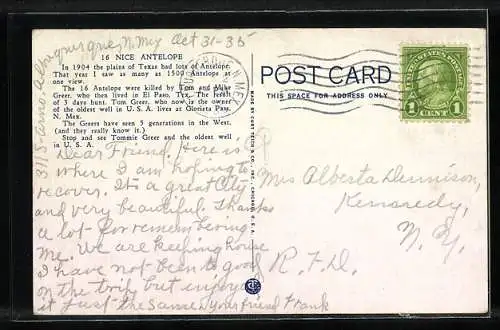 Albuquerque, N. Mex Oct 31-35
16 NICE ANTELOPE
In 1904 the plains of Texas had lots of Antelope.
That year I saw as many as 1500 Antelope at
one view.
The 16 Antelope were killed by Tom and Mike
Greer, who then lived in El Paso, Tex. The result
of 3 days hunt. Tom Greer, who now is the owner
of the oldest well in U. S. A. lives at Glorieta Pass,
N. Mex.
The Greers have seen 5 generations in the West.
(and they really know.)
Stop and see Tommie Greer and the oldest well
in U. S. A.
Dear Friend. Here is
where I am hoping to
recover. It's a great City
and very beautiful. Thanks
a lot for remembering
me. We are keeping house
I have not been to good
on the trip but enjoyed
it just the same. Your friend Frank
POST CARD
THIS SPACE FOR ADDRESS ONLY
UNITED STATES POSTAGE
1 CENT 1
Mrs Alberta Dennison,
Kennedy,
N. Y.
R. F. D.